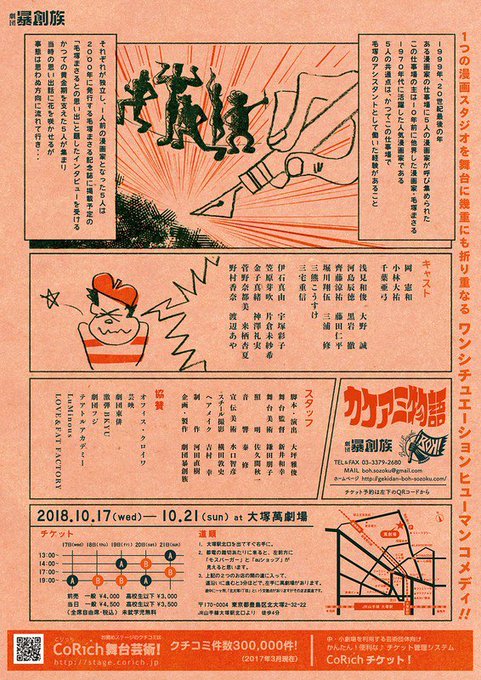 劇団 暴創族
1つの漫画スタジオを舞台に幾重にも折り重なる ワンシチュエーションヒューマンコメディ!!
1999年、20世紀最後の年
ある漫画家の仕事場に5人の漫画家が呼び集められた
この仕事場の主は10年前に他界した漫画家・毛塚まさる
1970年代に活躍した人気漫画家である
5人の共通点は、かつてこの仕事場で
毛塚のアシスタントとして働いた経験があること
それぞれが独立し、1人前の漫画家となった5人は
2000年に発行する毛塚まさる記念誌に掲載予定の
「毛塚まさるとの思い出」と題したインタビューを受ける
かつての黄金期を支えた5人が集まり
当時の思い出話に花を咲かせるが
事態は思わぬ方向に流れて行き・・・
キャスト
岡 憲和
小林大祐
千葉亜弓
浅見和俊 大野 誠
河島辰徳 黒岩 徹
齊藤涼祐 藤田仁平
堀川翔伍 三浦 修
三熊こうすけ
三宅重信
伊石真由 宇塚彩子
笠原芽吹 片倉未紗希
金子真緒 神澤礼実
菅野奈都美 来栖杏夏
野村香奈 渡辺あや
スタッフ
脚本・演出 大坪雅俊
舞台監督 新井和幸
舞台美術 鎌田朋子
照明 佐久間秋一
音響 泰 修
宣伝美術 水口智彦
スチール撮影 横田敦史
ヘアメイク 吉村
制作 河田直樹
企画・製作 劇団暴創族
協賛
オフィス・クロイワ
芸映
劇団東俳
激弾BKYU
劇団フジ
テアトルアカデミー
LuMinous
LOVE&FAT FACTORY
カケアミ物語
劇団 暴創族
TEL&FAX 03-3379-2680
MAIL boh.sozoku@gmail.com
ホームページ http://gekidan-boh-sozoku.com/
チケット予約は左下のQRコードから
2018.10.17(wed)―10.21(sun) at 大塚萬劇場
チケット
17日(wed) 18日(thu) 19日(fri) 20日(sat) 21日(sun)
13:00~
14:00~
17:00~
19:00~
前売 一般 ¥4,000 高校生以下 ¥3,000
当日 一般 ¥4,500 高校生以下 ¥3,500
(全席自由席・税込) 未就学児無料
道順
1. 大塚駅北口を出てすぐ右手に。
2. 都電の踏切あたりに来ると、左前方に「モスバーガー」と「auショップ」が見えると思います。
3. 上記の2つのお店の間の道に入って、道沿いに進むと3分ほどで、左手に萬劇場があります。
〒170-0004 東京都豊島区北大塚2-32-22
JR山手線 大塚駅北口より 徒歩4分
萬劇場
JR山手線 大塚駅
お薦めステージのクチコミは
CoRich舞台芸術!
http://stage.corich.jp
クチコミ件数300,000件!
(2017年3月現在)
中・小劇場を利用する芸術団体向け
かんたん!便利な♪チケット管理システム
CoRich チケット!